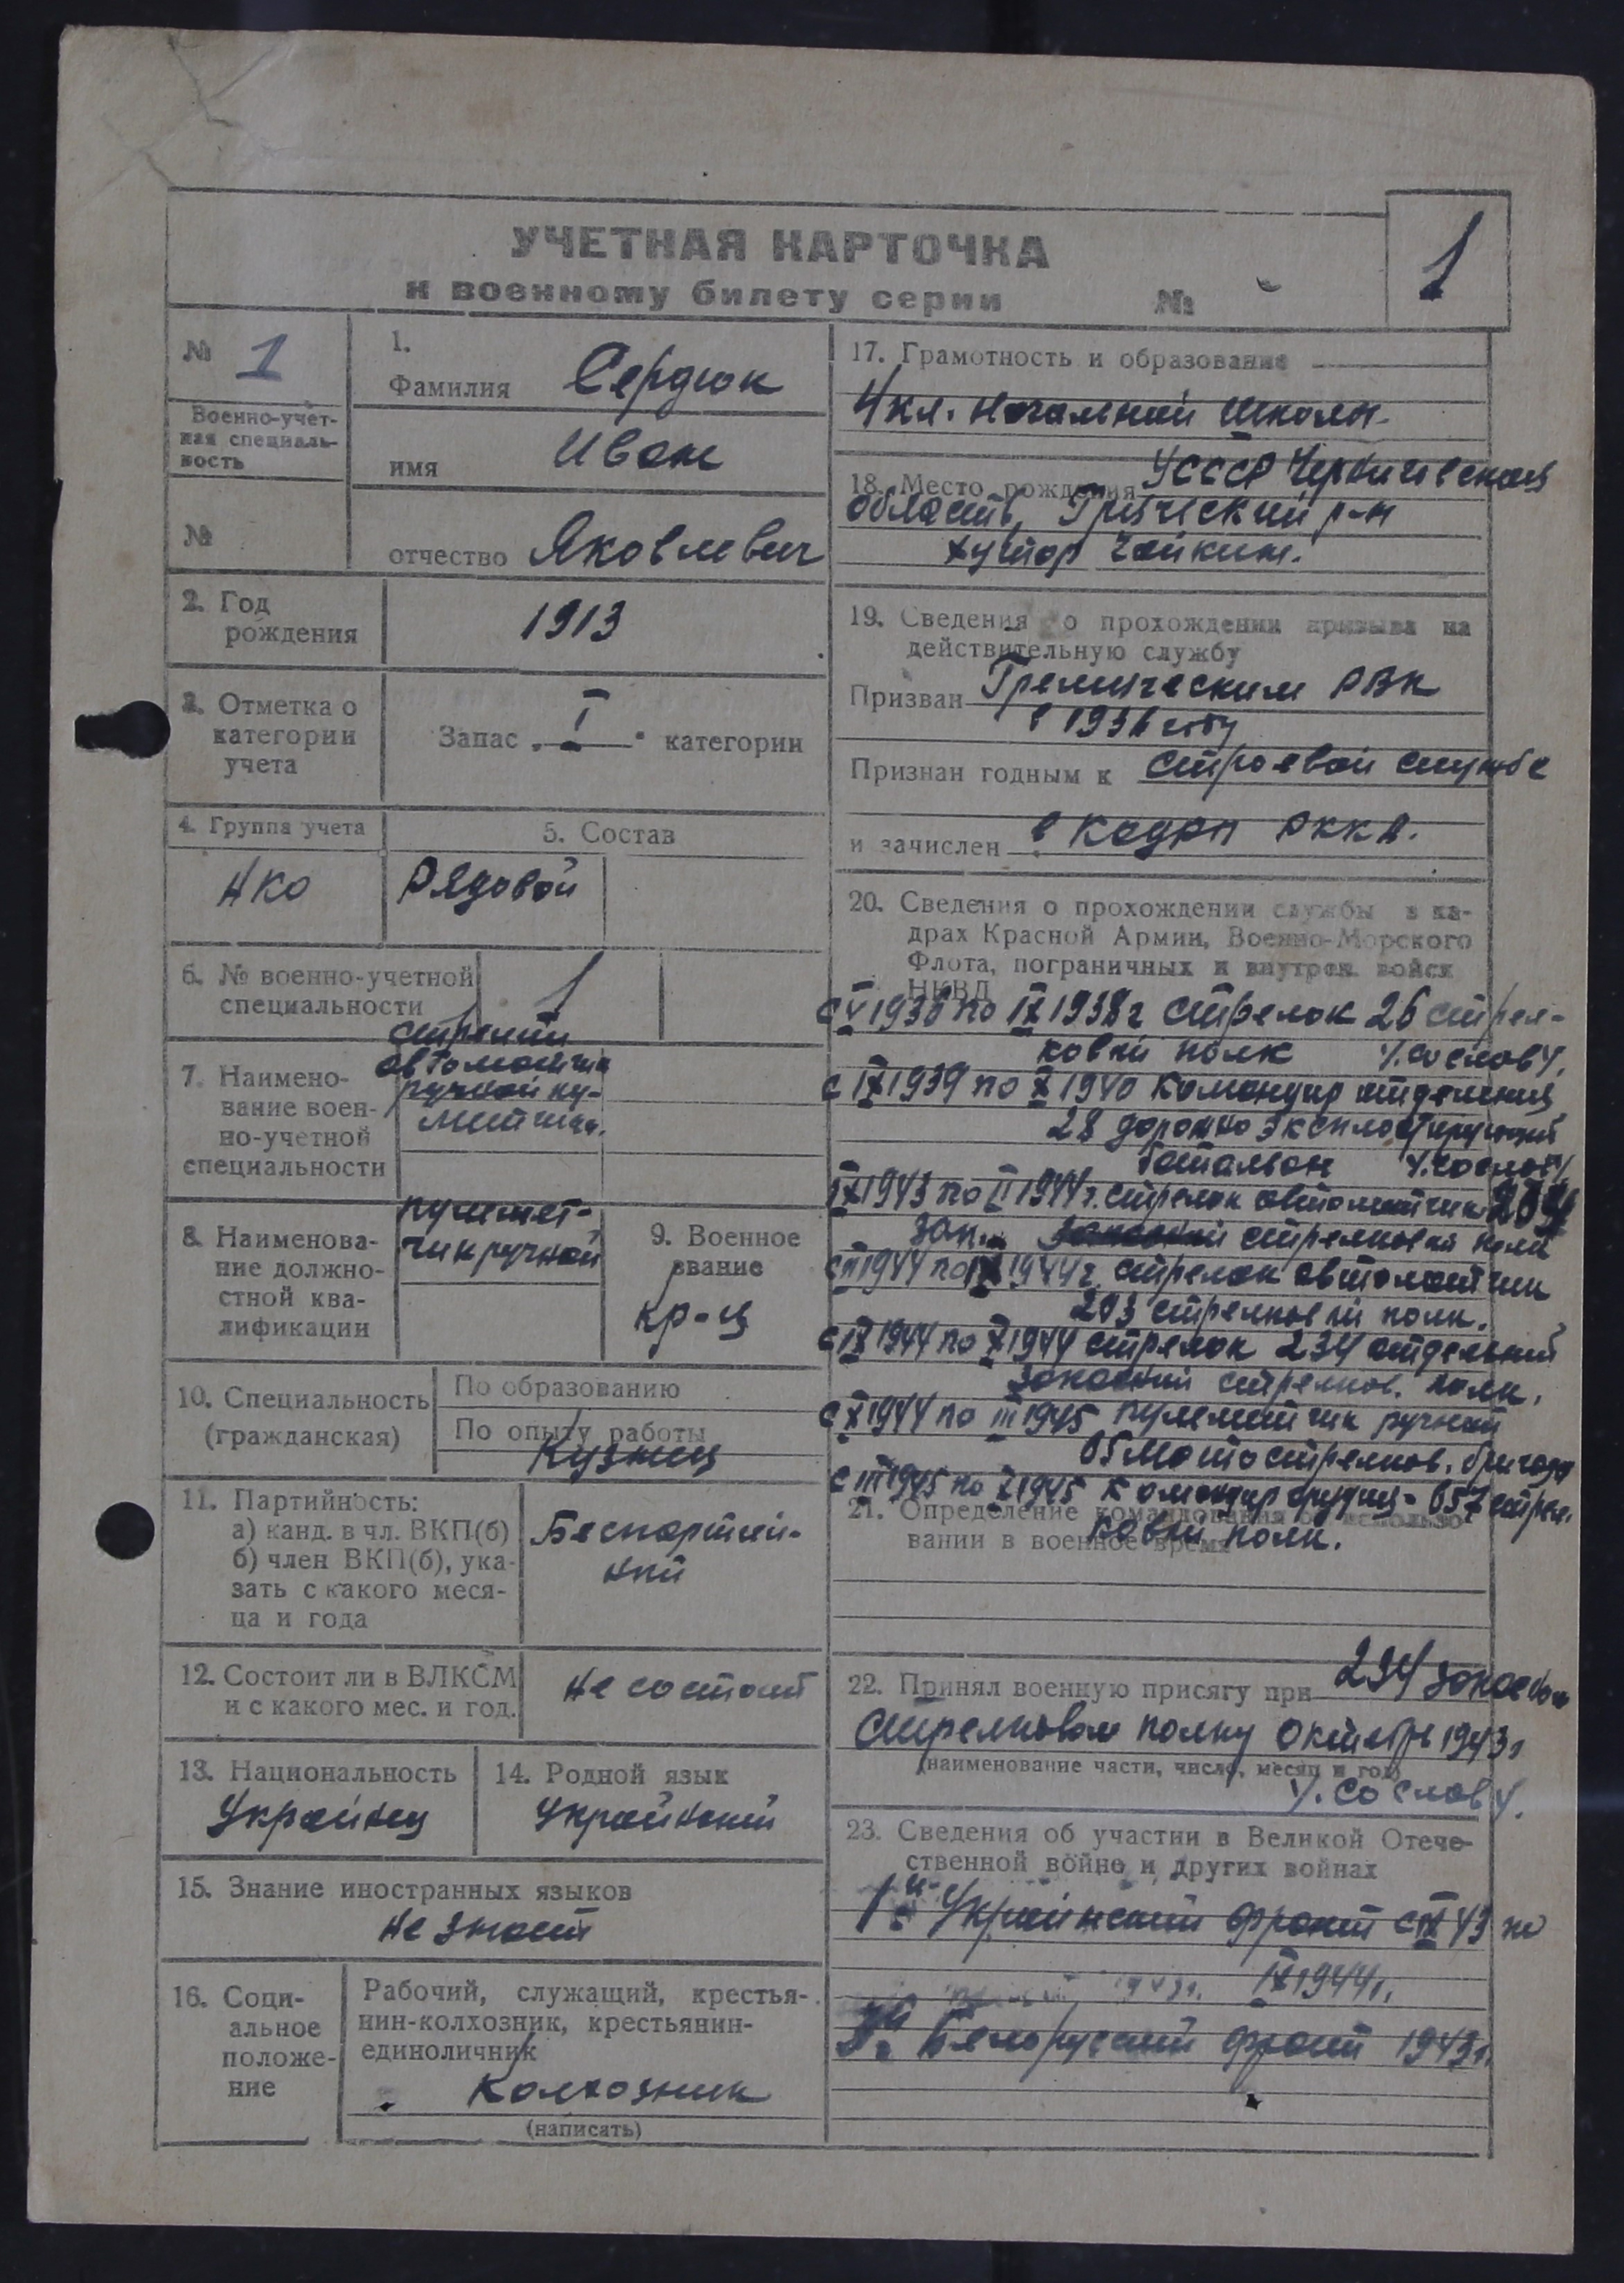 УЧЕТНАЯ КАРТОЧКА
к военному билету серии №
1
№ 1
Военно-учет-
ная специаль-
ность
№
1.
Фамилия Сердюк
имя Иван
отчество Яковлевич
2. Год
рождения
1913
3. Отметка о
категории
учета
Запас „ I " категории
4. Группа учета
НКО
5. Состав
Рядовой
6. № военно-учетной
специальности
1
7. Наимено-
вание воен-
но-учетной
специальности
стрелки
автоматчик
ручной пу-
8. Наименова-
ние должно-
стной ква-
лификации
пулемет-
чик ручной
9. Военное
звание
кр-ц
10. Специальность
(гражданская)
По образованию
По опыту работы
Кузнец
11. Партийность:
а) канд. в чл. ВКП(б)
б) член ВКП(б), ука-
зать с какого меся-
ца и года
Беспартий-
ный
12. Состоит ли в ВЛКСМ
и с какого мес. и год.
не состоит
13. Национальность
Украинец
14. Родной язык
Украинский
15. Знание иностранных языков
не знает
16. Соци-
альное
положе-
ние
Рабочий, служащий, крестья-
нин-колхозник, крестьянин-
единоличник
Колхозник
(написать)
17. Грамотность и образование
4 кл. начальной школы.
18. Место рождения УССР Черниговская
область, р-н
хутор Чайкин.
19. Сведения о прохождении призыва на
действительную службу
Призван Гремячским РВК
в 1936 году
Признан годным к строевой службе
и зачислен в кадры РККА.
20. Сведения о прохождении службы в ка-
драх Красной Армии, Военно-Морского
Флота, пограничных и внутрен. войск
НКВД
с V 1936 по IX 1938 г стрелок 26 стрел-
ковый полк У. со слов У.
с IX 1939 по X 1940 командир отделения
28 дорожно эксплоатирующий
батальон У. со слов У.
IX 1943 по II 1944 г. стрелок автоматчик 204
зап. стрелковый полк
с II 1944 по IX 1944 г. стрелок автоматчик
203 стрелковый полк.
с IX 1944 по X 1944 стрелок 234 отдельный
запасный стрелков. полк.
с X 1944 по III 1945 пулеметчик ручной
мотострелков. бригада
с III 1945 по X 1945 командир орудия - 657 стрел.
ковый полк.
21. Определение командования об использо-
вании в военное время
22. Принял военную присягу при 234 запасном
стрелковом полку октябрь 1943 г
(наименование части, число, месяц и год)
У. со слов У.
23. Сведения об участии в Великой Отече-
ственной войне и других войнах
1й Украинский фронт с IX 43 по
IX 1944 г.
Белорусский фронт 1943 г.